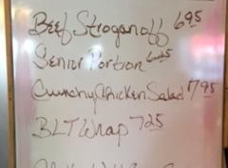 Beef Stroganoff 6.95
Senior Portion
Crunchy Chicken Salad 7.95
BLT Wrap 7.25